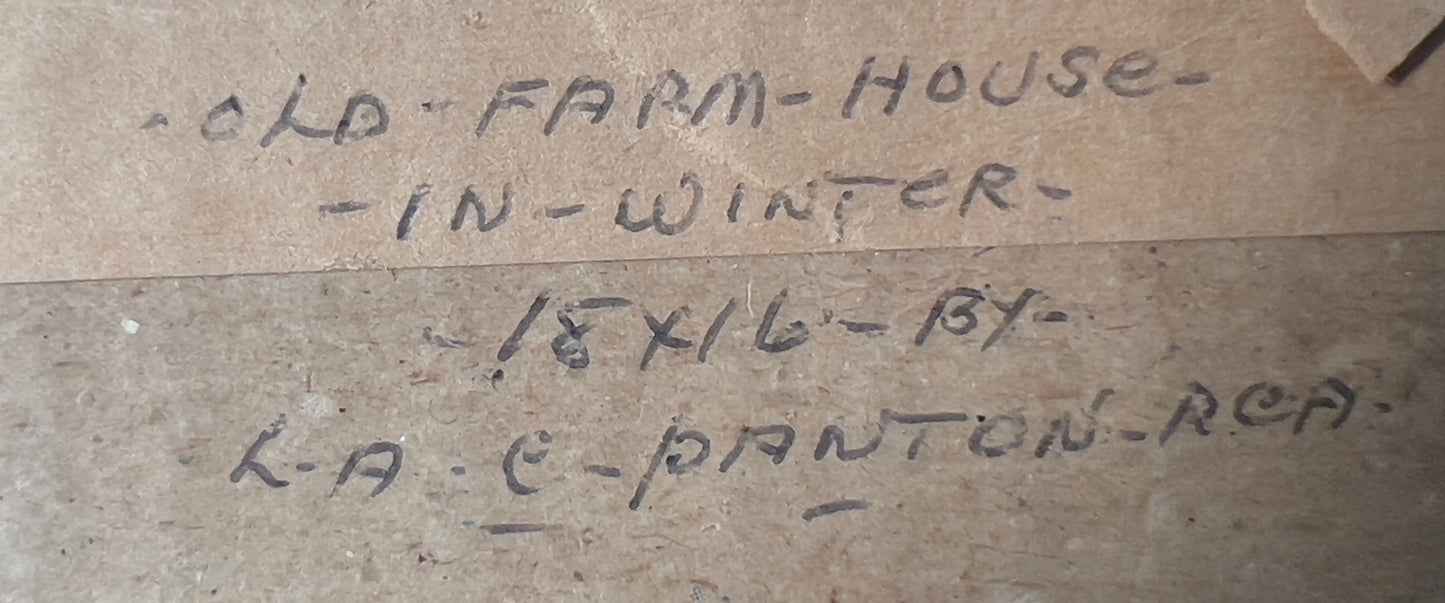 ·OLD-FARM-HOUSE-
-IN-WINTER-
-18X16-BY-
L-A·E-PANTON-RCA·